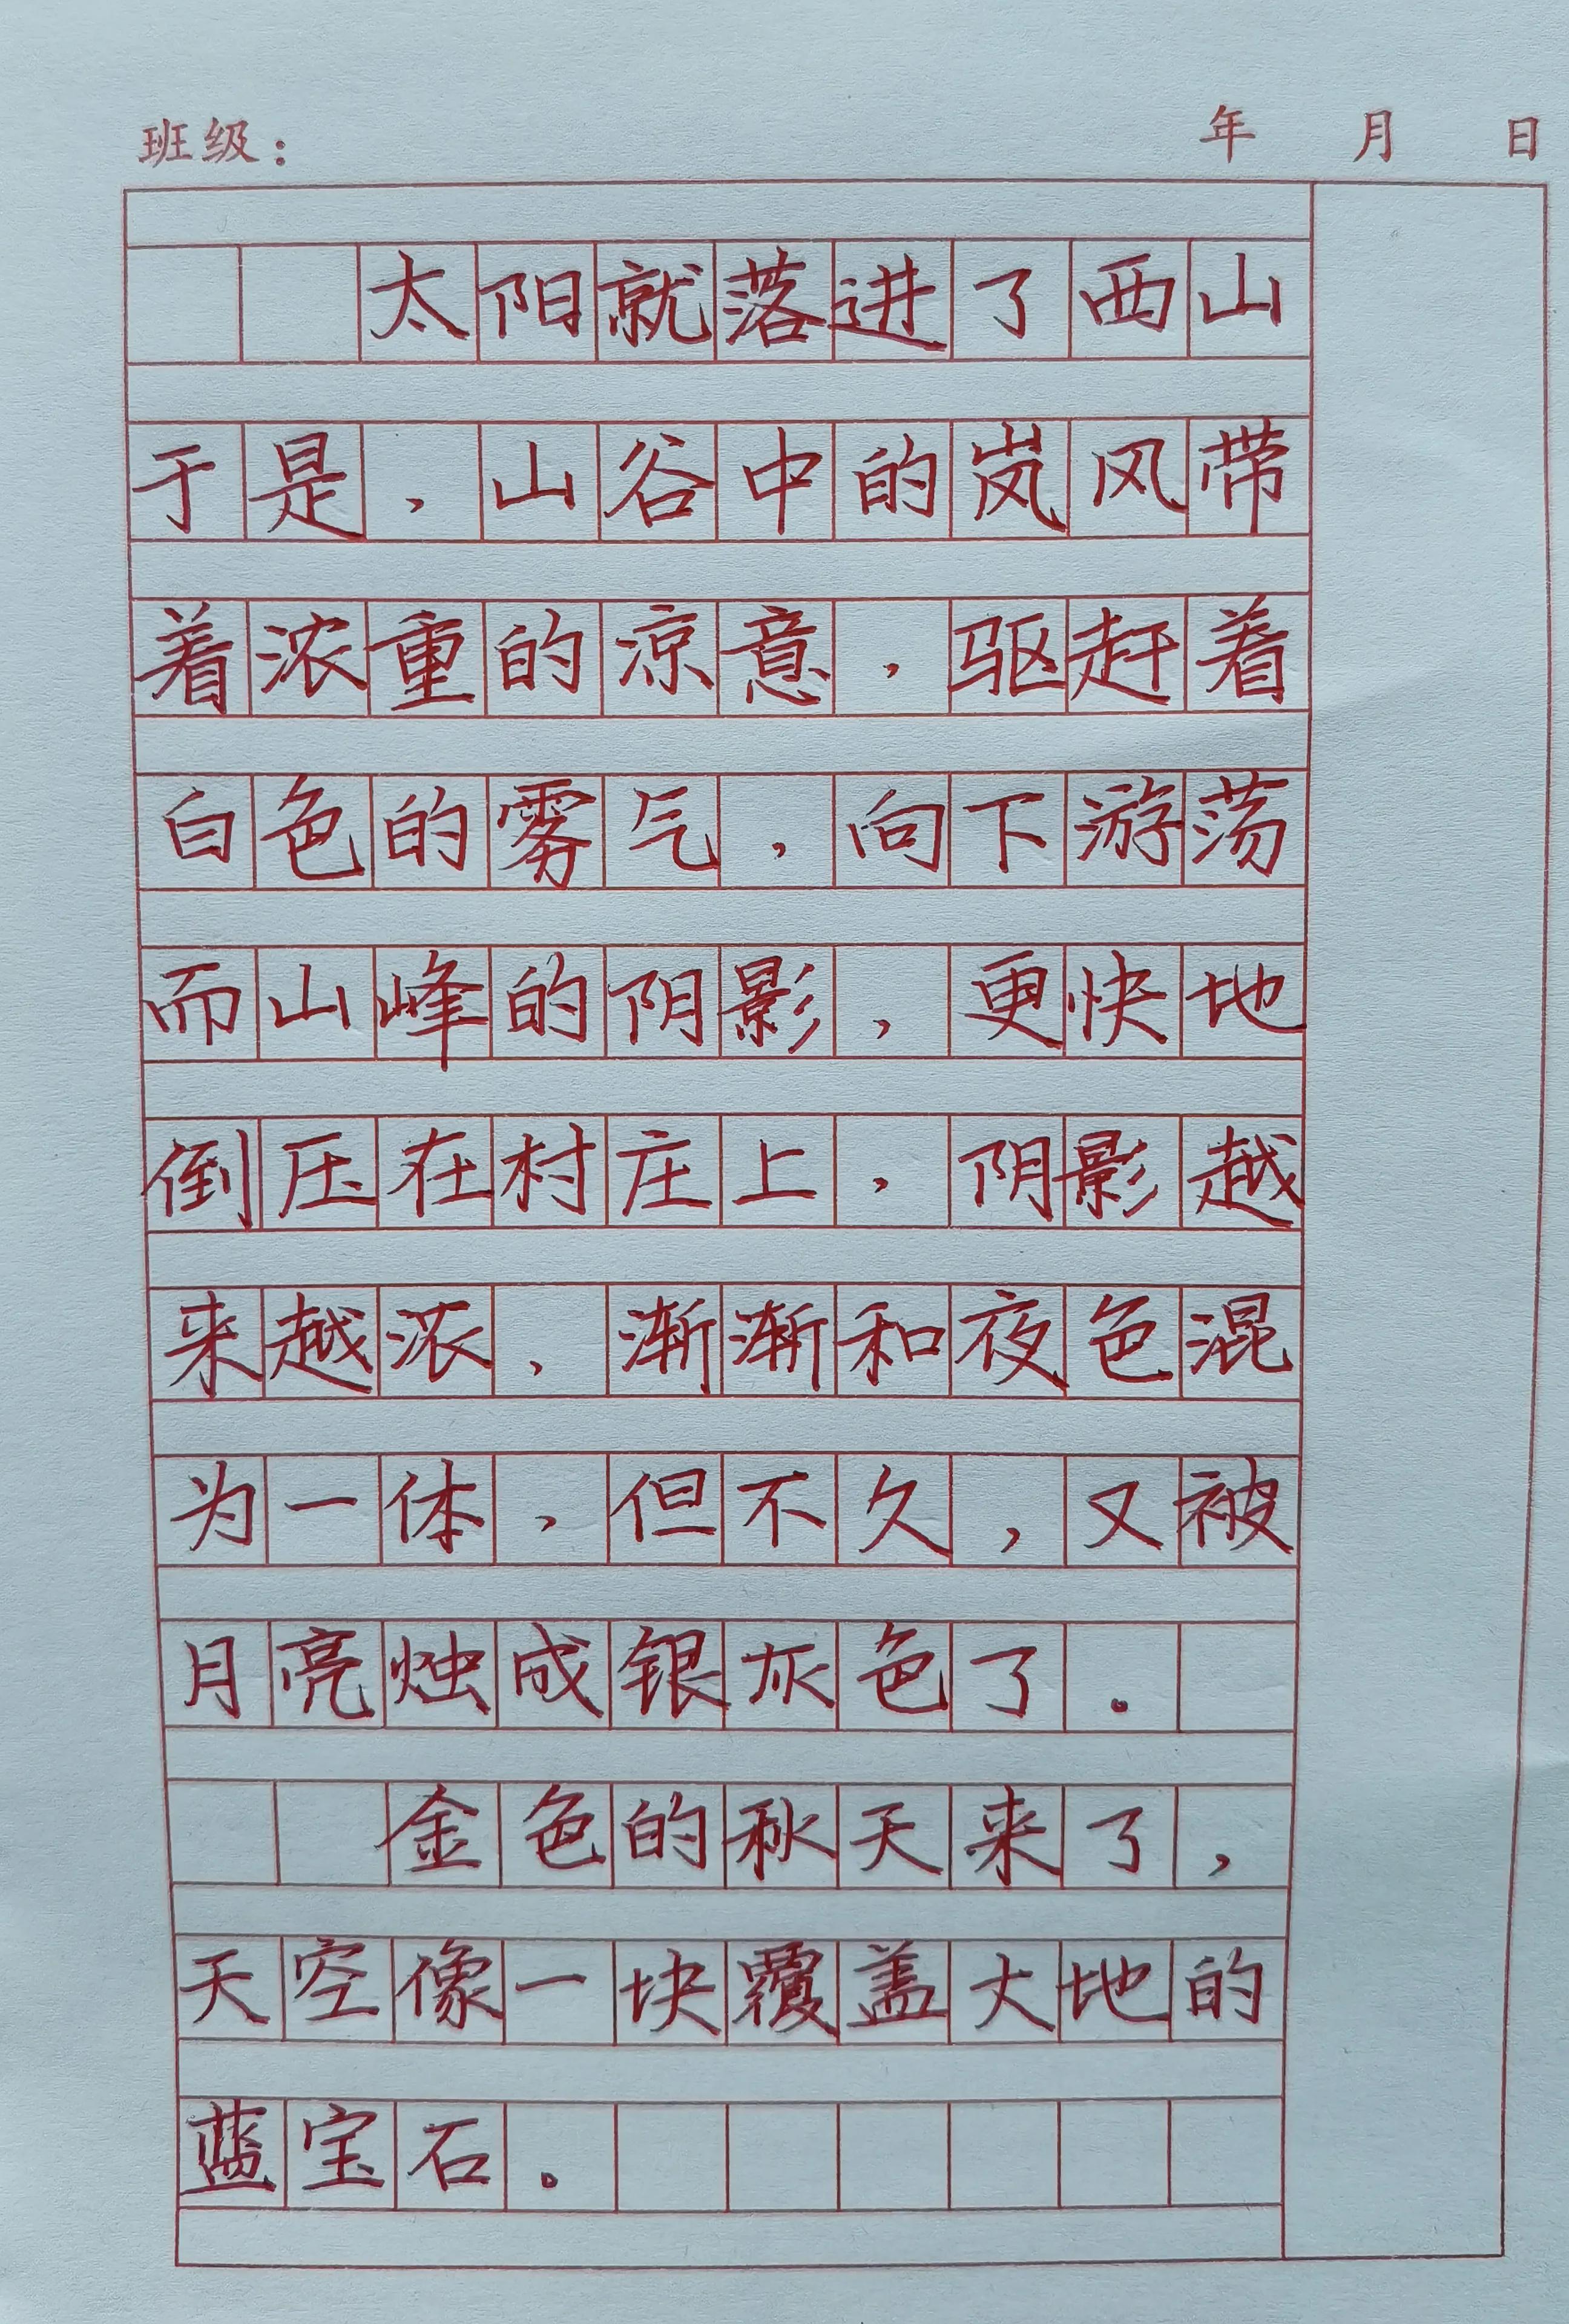 班级： 年 月 日
太阳就落进了西山
于是，山谷中的岚风带
着浓重的凉意，驱赶着
白色的雾气，向下游荡
而山峰的阴影，更快地
倒压在村庄上，阴影越
来越浓，渐渐和夜色混
为一体，但不久，又被
月亮烛成银灰色了。
金色的秋天来了，
天空像一块覆盖大地的
蓝宝石。